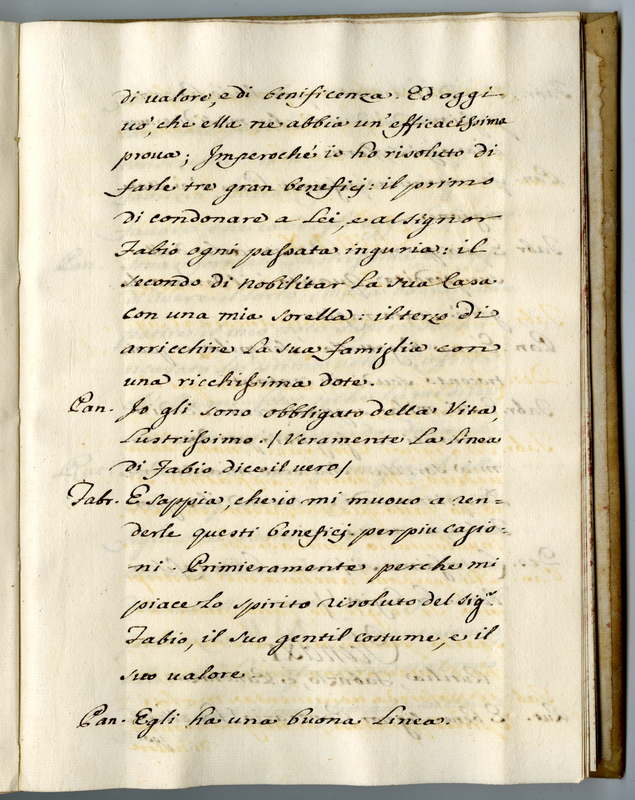 di valore, e di benificenza. Ed oggi
vo', che ella ne abbia un' efficacissima
prova; Imperoché io ho risoluto di
farle tre gran beneficj: il primo
di condonare a Lei, e al signor
Fabio ogni passata inguria: il
secondo di nobilitar la sua Casa
con una mia soralla: il terzo di
arricchire la sua famiglia con
una ricchissima dote.
Pan. Io gli sono obbligato della Vita,
Lustrissimo. / Veramente la linea
di Fabio dice il vero /
Fabr. E sappia, che io mi muovo a ren=
derle questi beneficj per piu cagio=
ni. Primieramente perche mi
piace lo spirito risoluto del sigr.
Fabio, il suo gentil costume, e il
suo valore.
Pan. Egli ha una buona Linea.